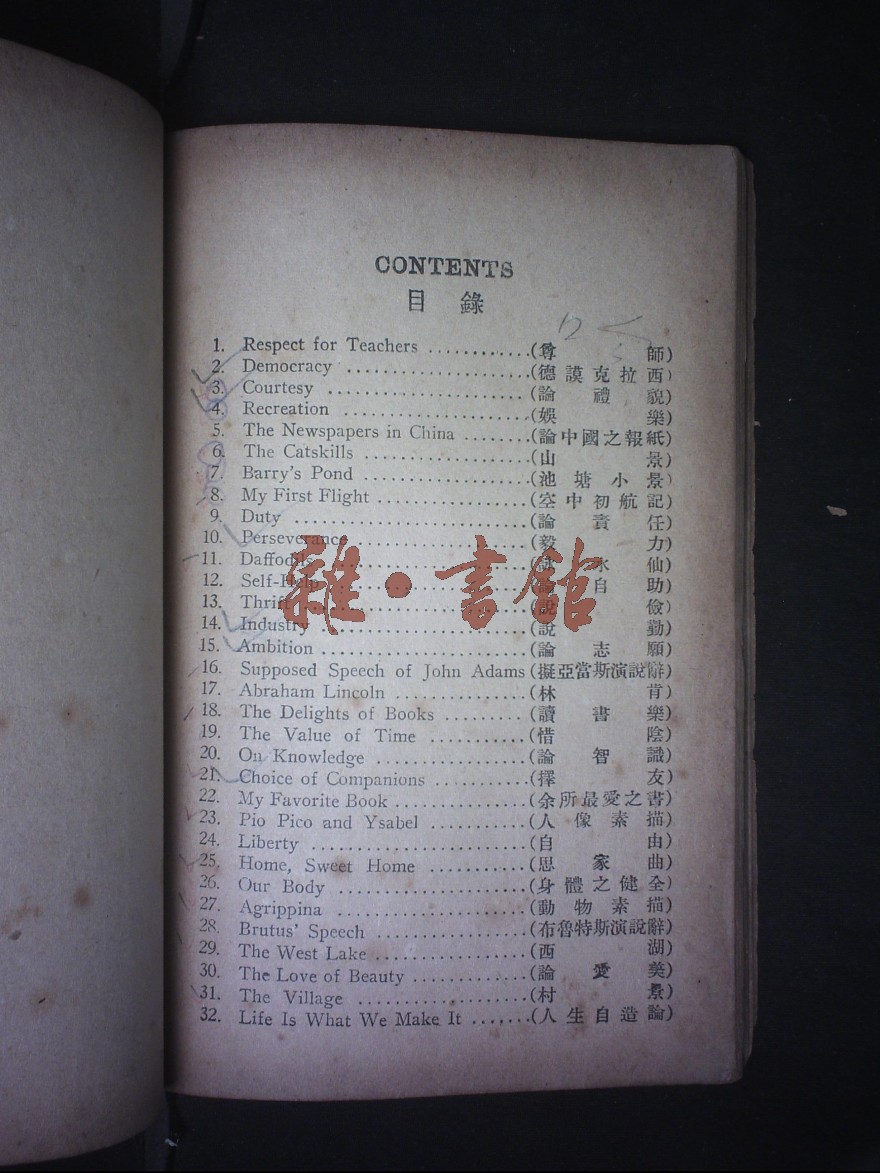 CONTENTS
目錄
1. Respect for Teachers ............(尊師)
2. Democracy ......................(德謨克拉西)
3. Courtesy ........................(論禮貌)
4. Recreation ......................(娛樂)
5. The Newspapers in China ........(論中國之報紙)
6. The Catskills ....................(山景)
7. Barry's Pond .....................(池塘小景)
8. My First Flight ..................(空中初航記)
9. Duty ............................(論責任)
10. Perseverance ....................(毅力)
11. Daffodils ....................(水仙)
12. Self-Help ....................(自助)
13. Thrift ....................(說儉)
14. Industry ........................(說勤)
15. Ambition ........................(論志願)
16. Supposed Speech of John Adams (擬亞當斯演說辭)
17. Abraham Lincoln ................(林肯)
18. The Delights of Books .........(讀書樂)
19. The Value of Time ............(惜陰)
20. On Knowledge ..................(論智識)
21. Choice of Companions ............(擇友)
22. My Favorite Book ................(余所最愛之書)
23. Pio Pico and Ysabel ............(人像素描)
24. Liberty ........................(自由)
25. Home, Sweet Home ............(思家曲)
26. Our Body ......................(身體之健全)
27. Agrippina ......................(動物素描)
28. Brutus' Speech ..................(布魯特斯演說辭)
29. The West Lake ..................(西湖)
30. The Love of Beauty ............(論愛美)
31. The Village ....................(村景)
32. Life Is What We Make It .......(人生自造論)
雜·書館